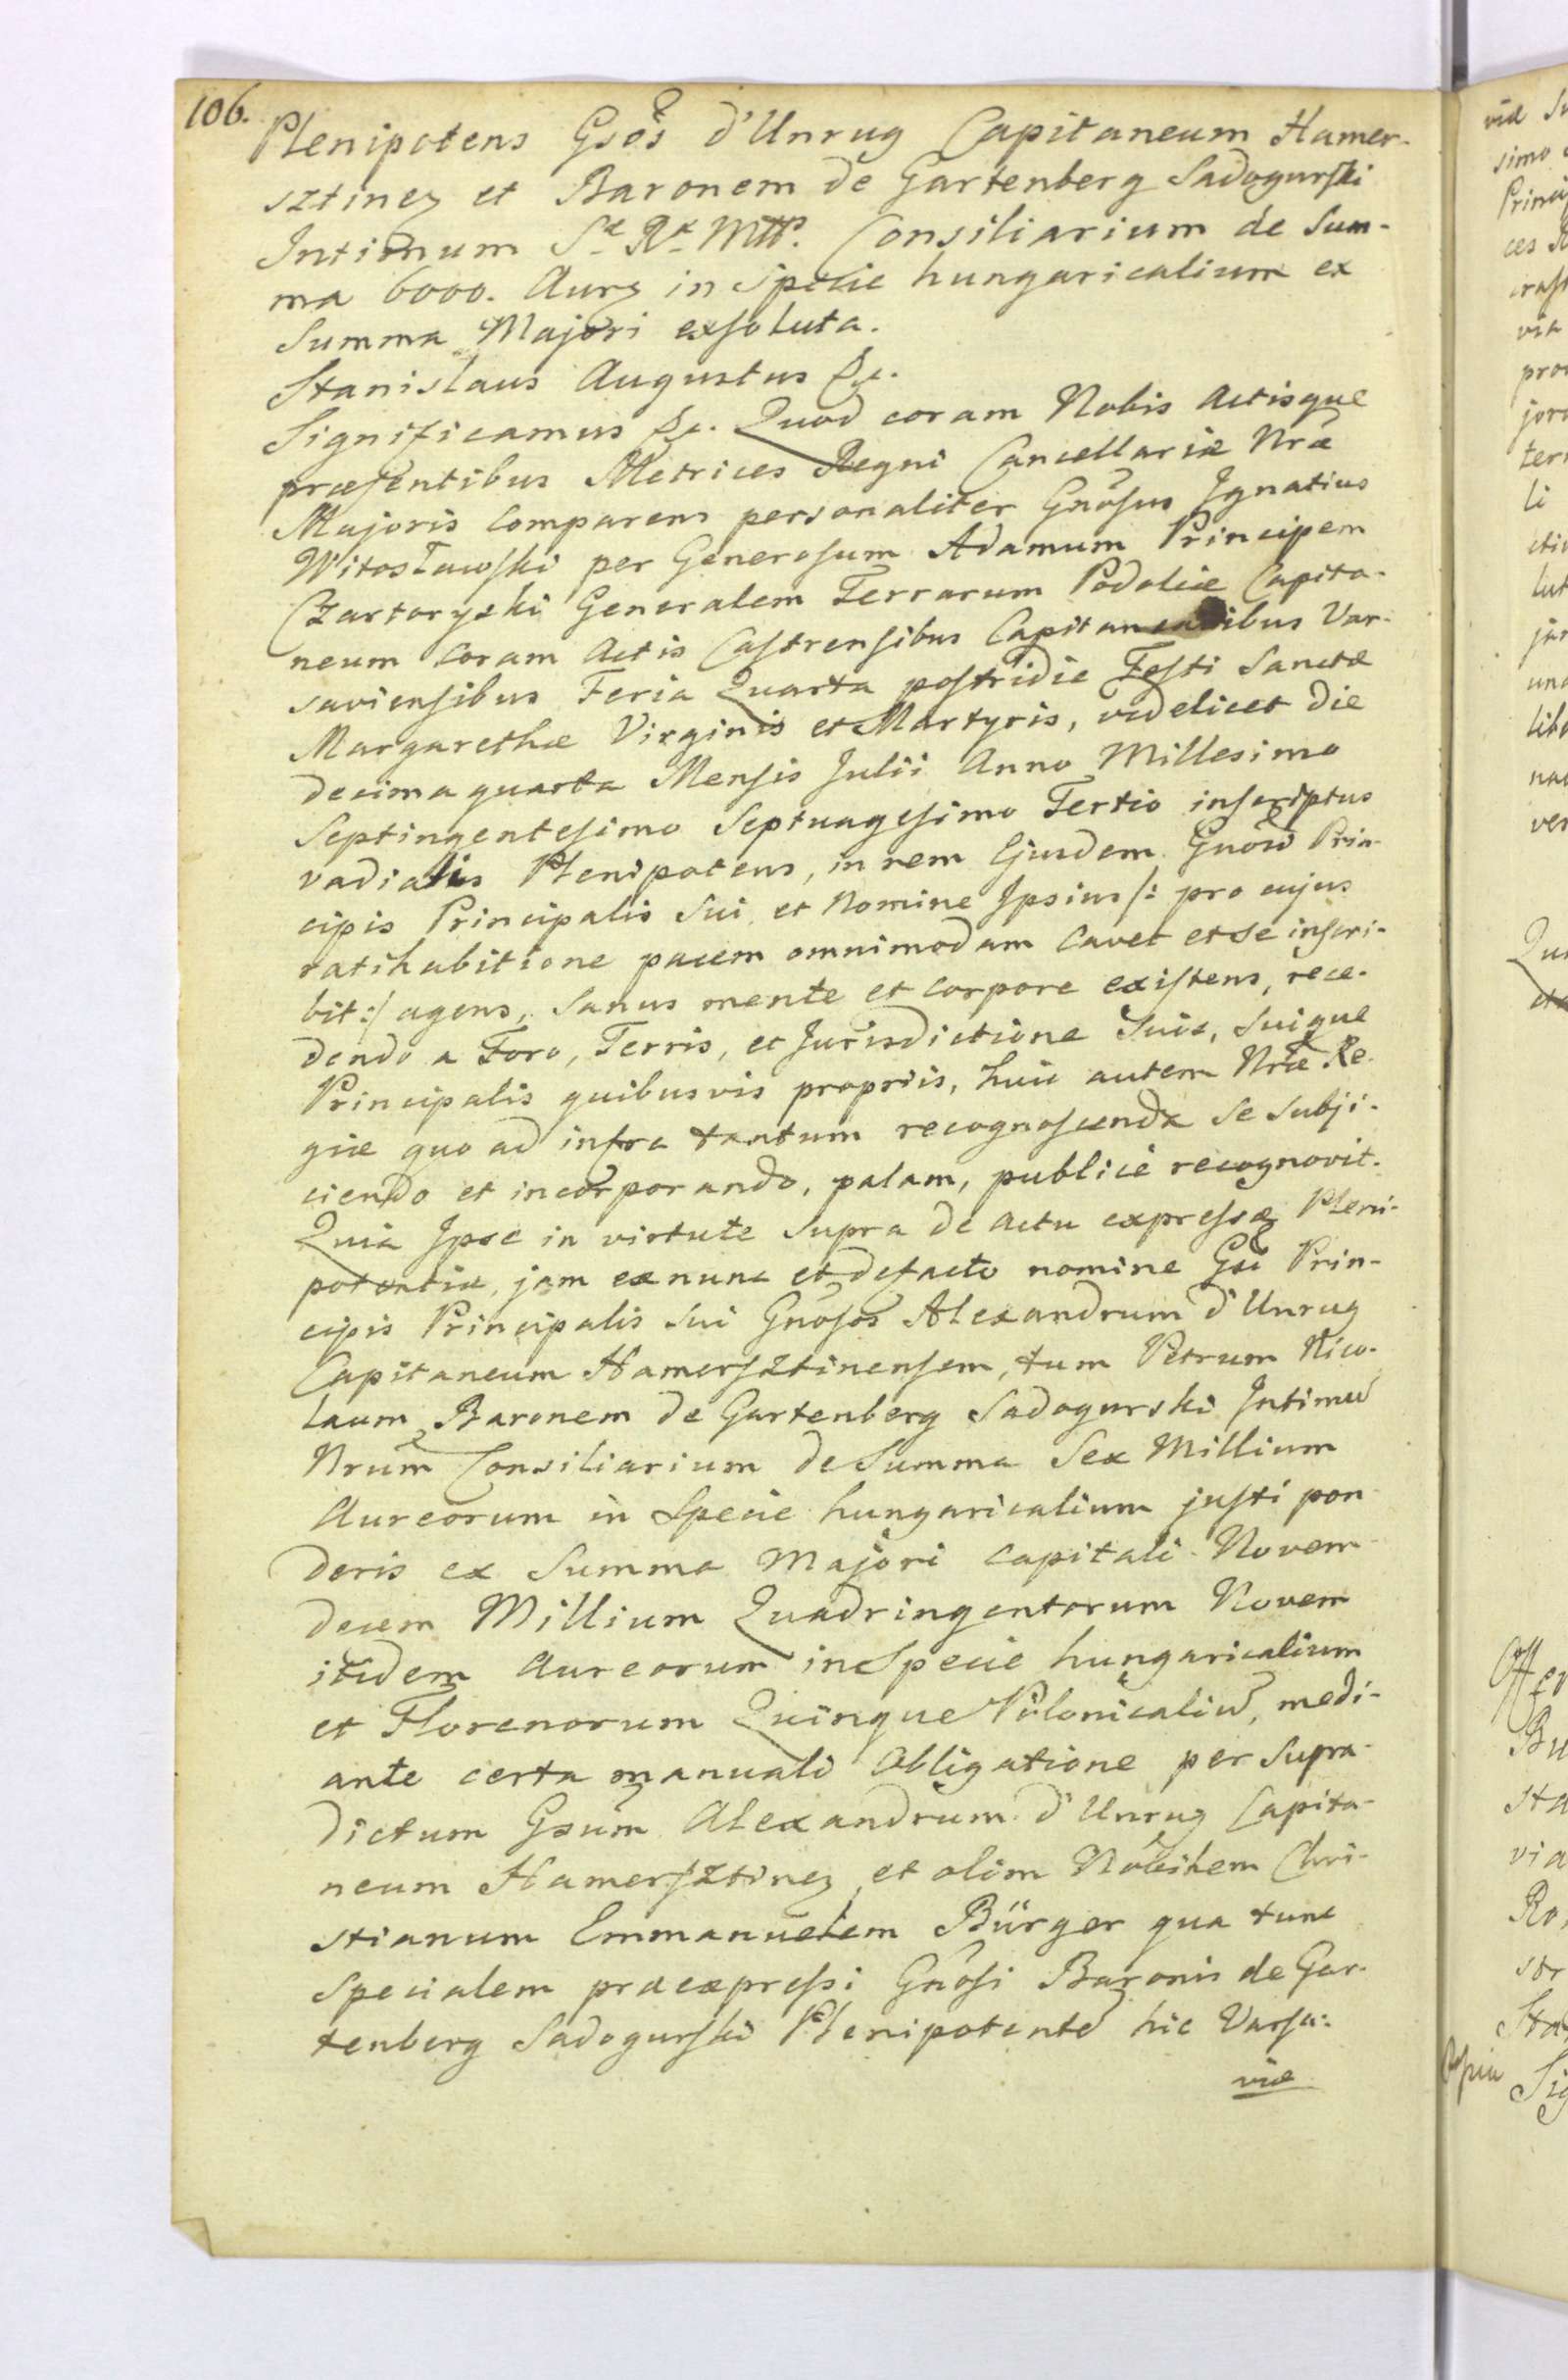 106.
Plenipotens Gsõs d'Unrug Capitaneum Hamer-
sztinez et Baronem de Gartenberg Sadogurski
Intimum Sæ Ræ Mttis. Consiliarium de Sum-
ma 6000. Aurz in Specie hungaricalium ex
Summa Majori exsoluta.
Stanislaus Augustus &c.
Significamus &c. Quod coram Nobis Actisque
præsentibus Metrices Regni Cancellariæ Nræ
Majoris Comparens personaliter Gnõsus Ignatius
Witosławski per Generosum Adamum Principem
Czartoryski Generalem Terrarum Podoliæ Capita-
neum Coram Actis Castrensibus Capitanealibus Var-
saviensibus Feria Quarta postridie Festi Sanctæ
Margarethæ Virginis et Martyris, videlicet Die
decima quarta Mensis Julii Anno Millesimo
Septingentesimo Septuagesimo Tertio inscriptus
vadialis Plenipotens, in rem Ejusdem Gnõsi Prin-
cipis Principalis Sui et Nomine Ipsius /: pro cujus
ratihabitione pacem omnimodam Cavet et se inscri-
bit :/ agens, Sanus mente et Corpore existens, rece-
dendo a Foro, Terris, et Jurisdictione Suis, Suique
Principalis quibusvis propriis, huic autem Nræ Re-
giæ quo ad infra tantum recognoscenda Se Subji-
ciendo et incorporando, palam, publice recognovit.
Quia Ipse in virtute Supra de actu expressæ Pleni-
potentiæ, jam ex nunc et defacto nomine Gsi Prin-
cipis Principalis Sui Gnõsos Alexandrum d'Unrug
Capitaneum Hamersztinensem, tum Petrum Nico-
laum Baronem de Gartenberg Sadogurski Intimũ
Nrũm Consiliarium de Summa Sex Millium
Aureorum in Specie hungaricalium justi pon-
deris ex Summa Majori Capitali Novem-
decem Millium Quadringentorum Novem
itidem Aureorum in Specie hungaricalium
et Florenorum Quinque Polonicaliũ, medi-
ante certa manuali Obligatione per Supra-
dictum Gsũm Alexandrum d'Unrug Capita-
neum Hamersztinez et olim Nobilem Chri-
stianum Emmanuelem Bürger qua tunc
Specialem præexpressi Gnõsi Baronis de Gar-
tenberg Sadogurski Plenipotentẽ hic Varsa-
viæ